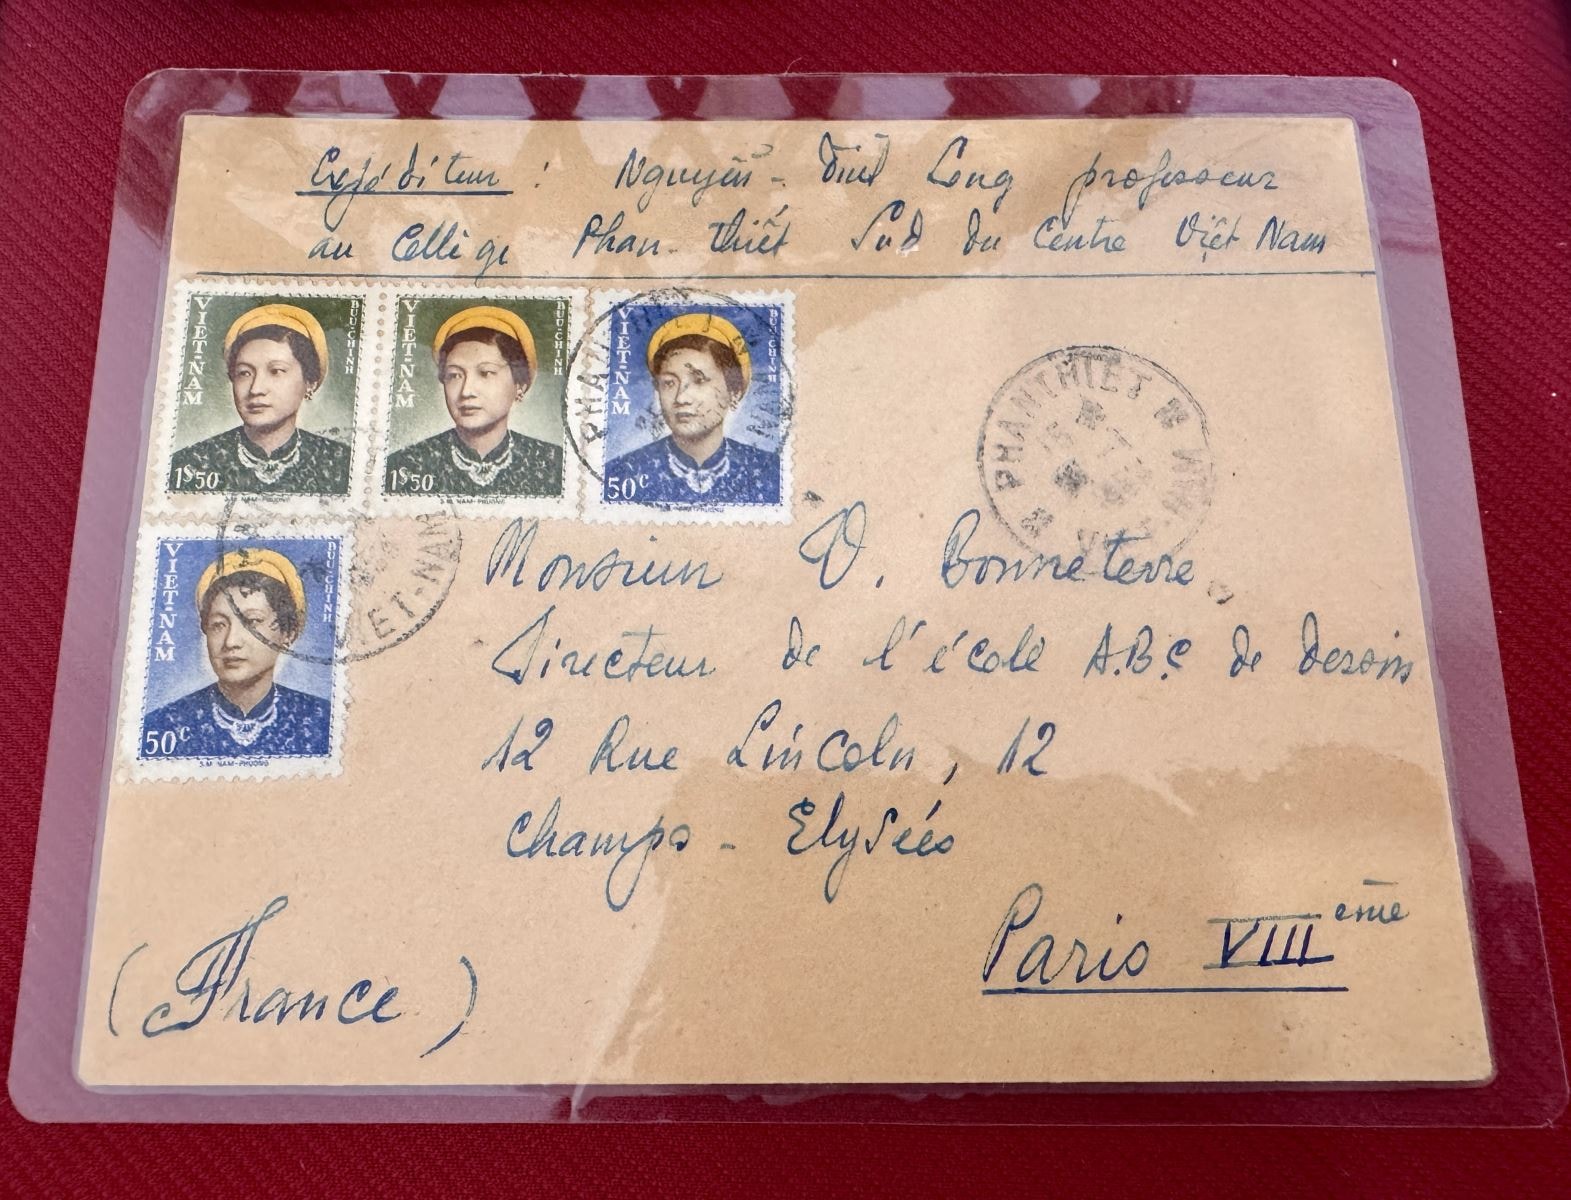 Expéditeur : Nguyễn - Long professeur
au Collège Phan-Thiết Sud du Centre Việt Nam
VIET-NAM
BUU-CHINH
1$50
S.M. NAM-PHUONG
VIET-NAM
BUU-CHINH
1$50
S.M. NAM-PHUONG
VIET-NAM
BUU-CHINH
50c
S.M. NAM-PHUONG
PHANTHIET
VIET-NAM
PHANTHIET
VIET-NAM
BUU-CHINH
50c
S.M. NAM-PHUONG
VIET-NAM
Monsieur V. Bonneterre
Directeur de l'école A.B.C de dessin
12 Rue Lincoln, 12
Champs - Elysées
Paris VIII ème
(France)